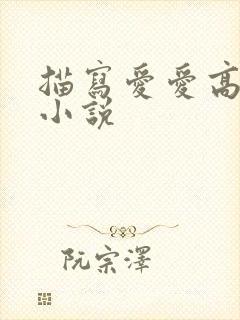 描寫愛愛高
小說
阮宗澤